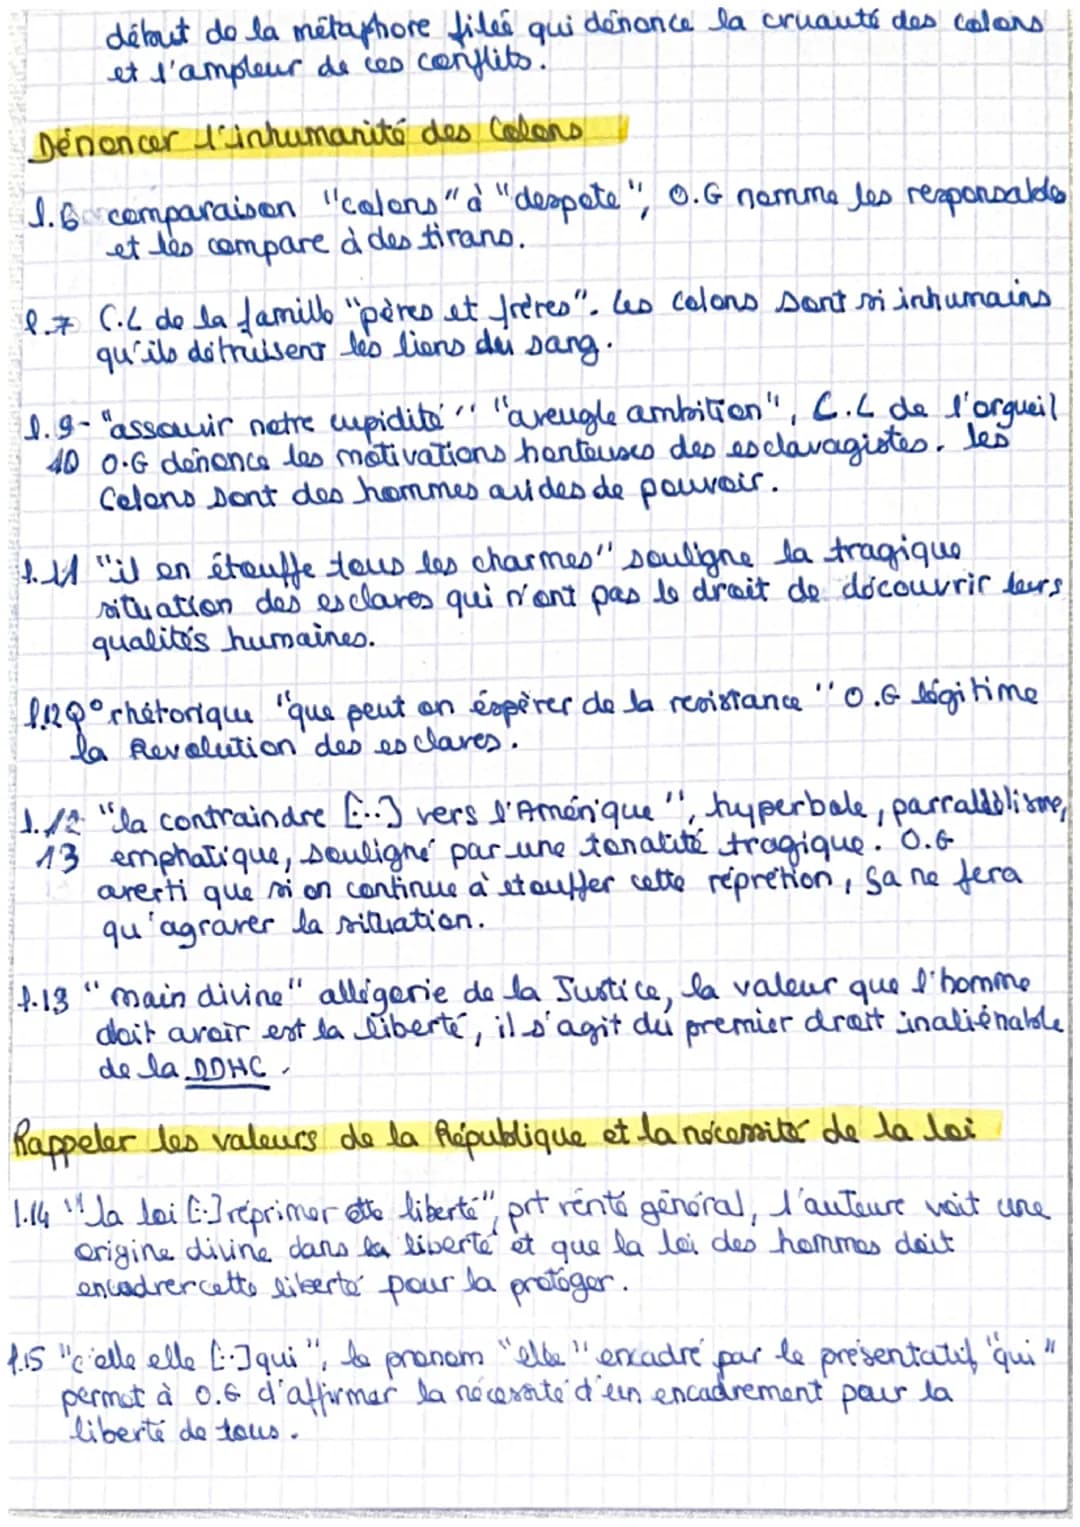 début de la métaphore filée qui dénonce la cruauté des colons
et l'ampleur de ces conflits.
Dénoncer l'inhumanité des Colons
l.6 comparaison "colons" à "despote", O.G nomme les responsables
et les compare à des tirans.
l.7 C.L de la famille "pères et frères". Les colons sont si inhumains
qu'ils détruisent les liens du sang.
l.9- "assouvir notre cupidité" "aveugle ambition", C.L de l'orgueil
10 O.G dénonce les motivations honteuses des esclavagistes. les
Colons sont des hommes avides de pouvoir.
l.11 "il en étouffe tous les charmes" souligne la tragique
situation des esclaves qui n'ont pas le droit de découvrir leurs
qualités humaines.
l.12 Q° rhétorique "que peut on éspèrer de la resistance" O.G légitime
la Revolution des esclaves.
l.12 "la contraindre [...] vers l'Amérique", hyperbole, parralélisme,
13 emphatique, souligné par une tonalité tragique. O.G
averti que si on continue à etouffer cette répretion, sa ne fera
qu'agraver la situation.
l.13 "main divine" allégorie de la Justice, la valeur que l'homme
doit avoir est la liberté, il s'agit du premier droit inaliénable
de la DDHC.
Rappeler les valeurs de la République et la nécessité de la loi
l.14 "la loi [...] réprimer cette liberté", prt vérité général, l'auteure voit une
origine divine dans la liberté et que la loi des hommes doit
encadrer cette liberté pour la protéger.
l.15 "c'elle elle [...] qui", le pronom "elle" encadré par le présentatif "qui"
permet à O.G d'affirmer la nécessité d'un encadrement pour la
liberté de tous.